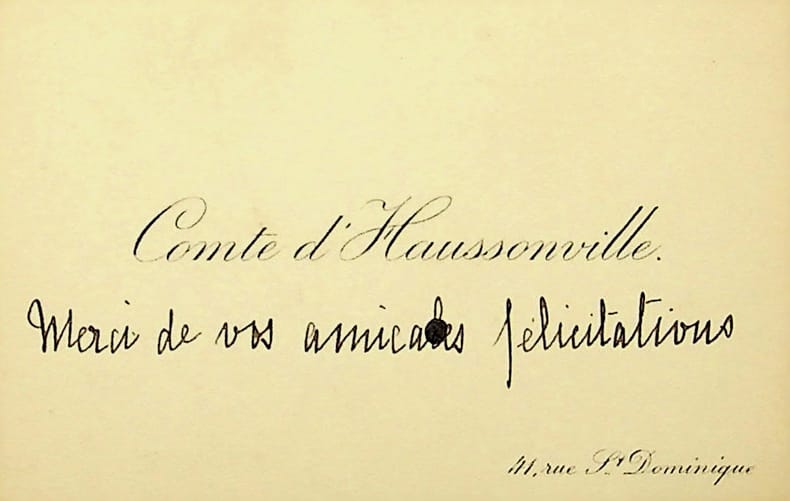 Comte d'Haussonville.
Merci de vos amicales félicitations
41, rue St Dominique